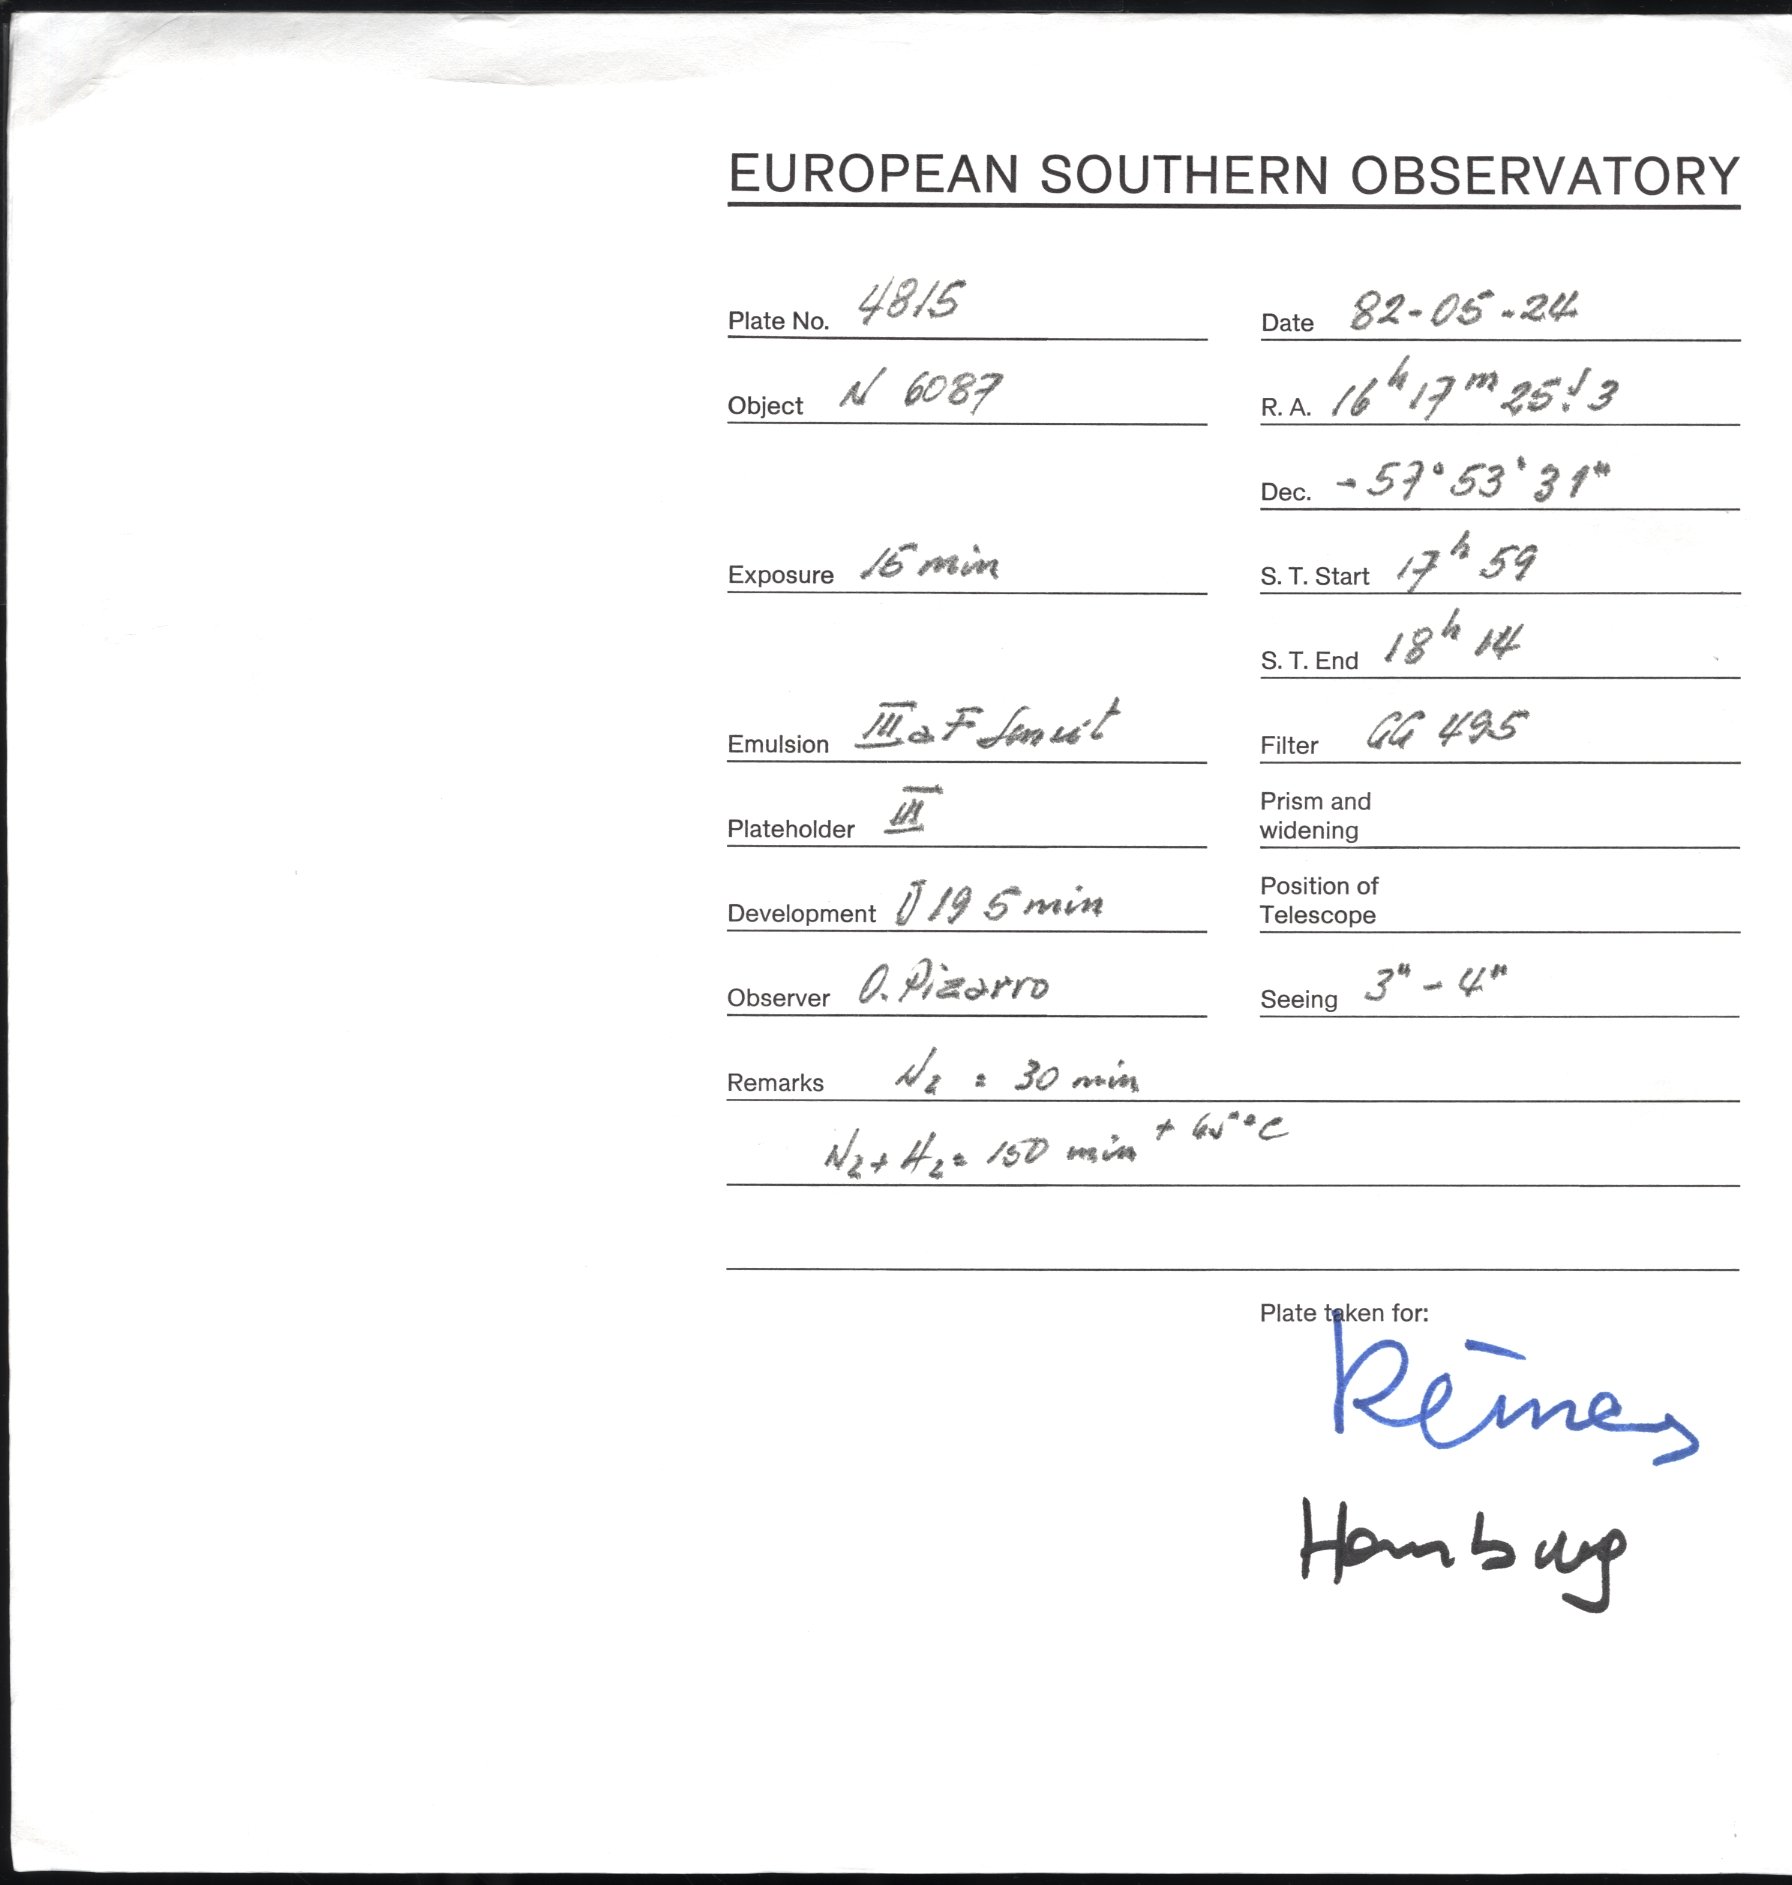 EUROPEAN SOUTHERN OBSERVATORY
Plate No. 4815
Date 82-05-24
Object N 6087
R. A. 16h 17m 25s.3
Dec. -57° 53' 31"
Exposure 15 min
S. T. Start 17h 59
S. T. End 18h 14
Emulsion III a F
Filter GG 495
Plateholder III
Prism and
widening
Development D 19 5 min
Position of
Telescope
Observer O. Pizarro
Seeing 3" - 4"
Remarks N2 = 30 min
N2 + H2 = 150 min + 65°C
Plate taken for:
Hamburg